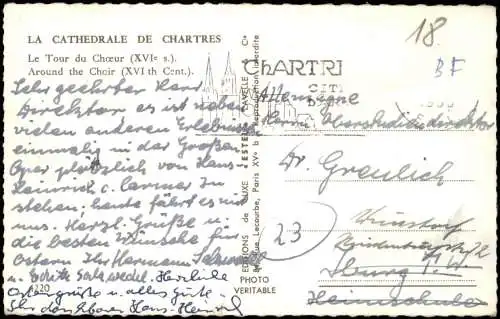 LA CATHEDRALE DE CHARTRES
Le Tour du Chœur (XVIe s.)
Around the Choir (XVI th Cent.)
Sehr geehrter Herr
Direktor es ist neben
vielen anderen Erlebnissen
einmalig in der Großen
Oper plötzlich von Hans-
Heinrich v. Carmer zu
stehen. heute fährt es mit
uns. Herzl. Grüße u.
die besten Wünsche für
Ostern Ihr Hermann
u. Herzliche
Ostergrüße u. alles Gute
Ihr dankbarer Hans-Heinrich
4220
EDITIONS de LUXE "ESTEL" LAVELLE Cie
Rue Lecourbe, Paris XVe Reproduction interdite
PHOTO
VERITABLE
CHARTRE
18
BF
Allemagne
Herrn Oberstudiendirektor
Dr. Greulich
23
Iburg T.W.
Heimschule